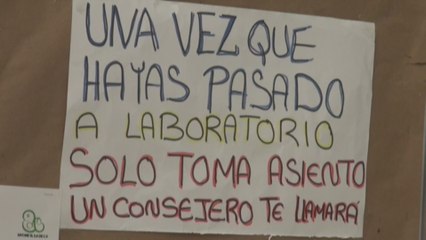 UNA VEZ QUE
HAYAS PASADO
A LABORATORIO
SOLO TOMA ASIENTO
UN CONSEJERO TE LLAMARÁ